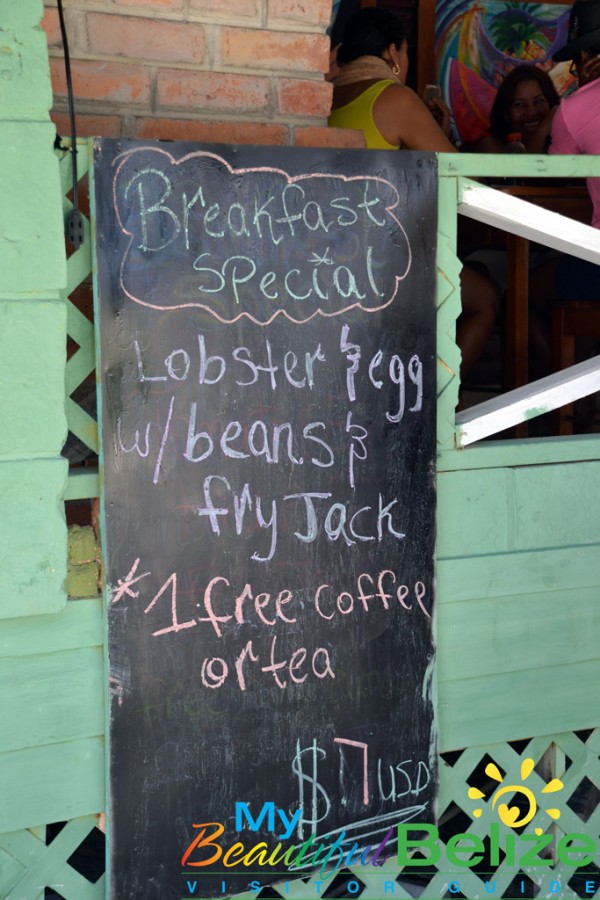 Breakfast
Special
Lobster & egg
w/beans &
fry Jack
*1 free coffee
or tea
$7 USD
My
Beautiful Belize
VISITOR GUIDE